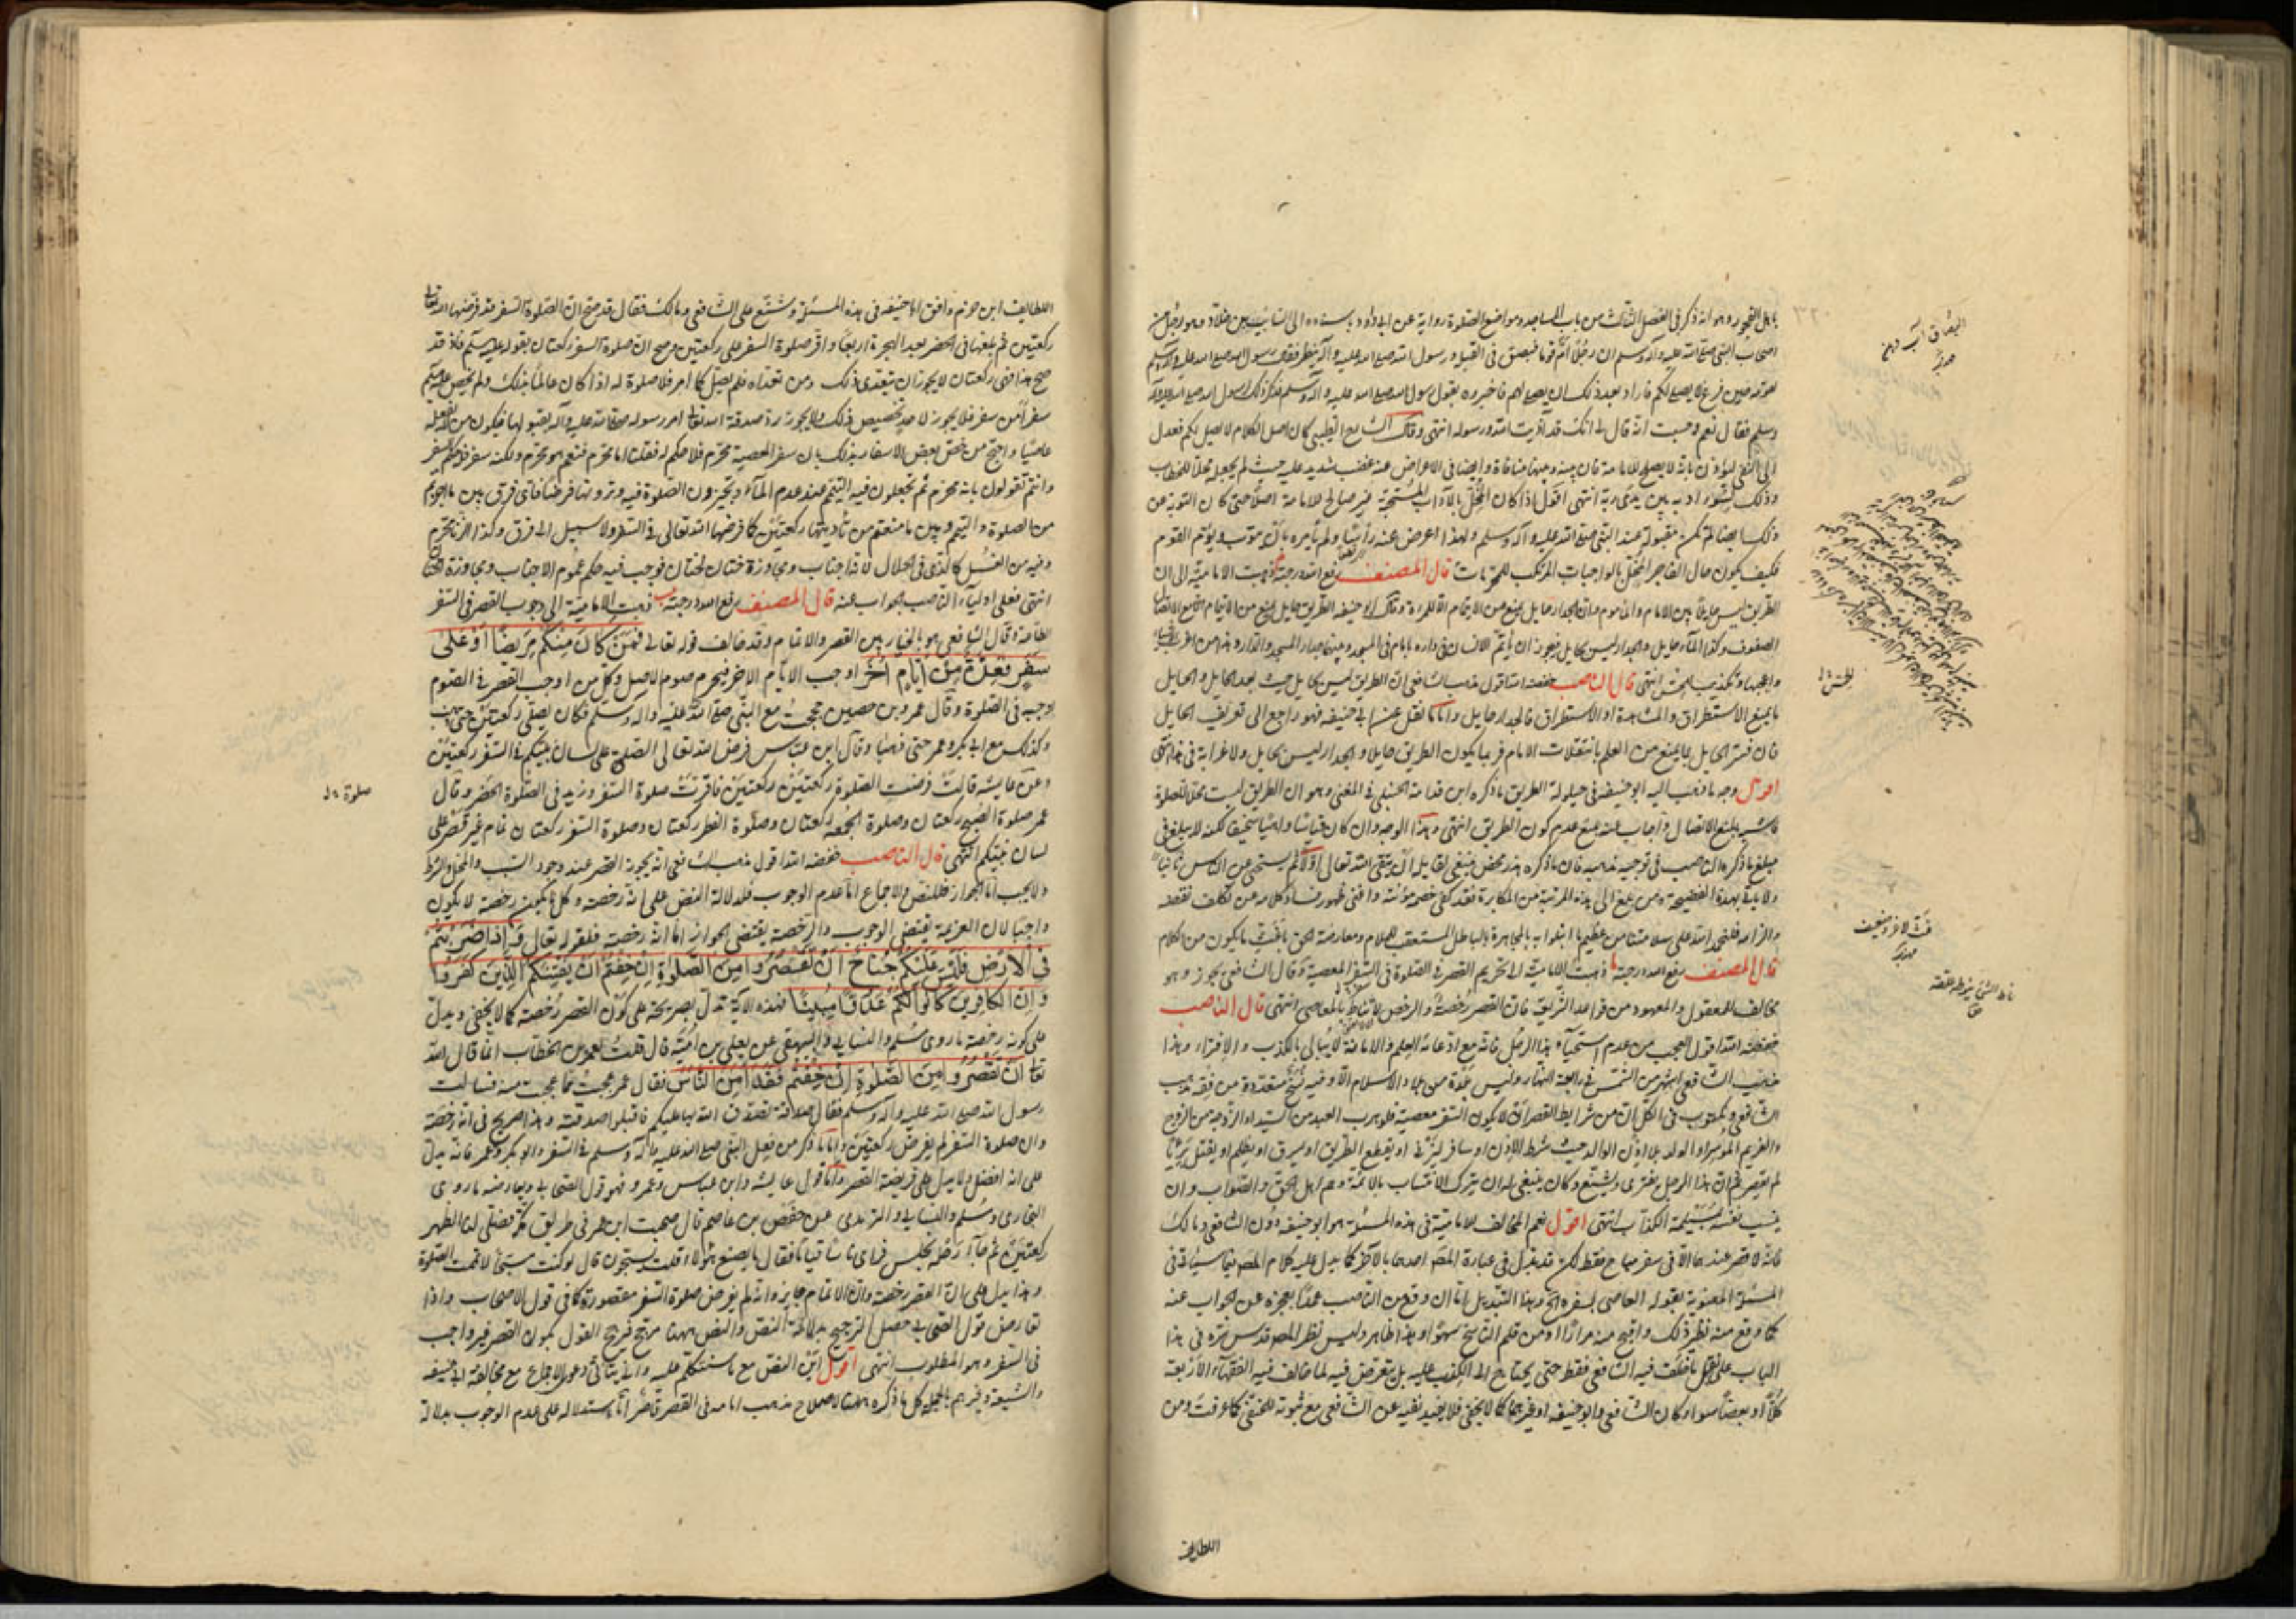 باهل الفجور وهو انه ذكر فى الفصل الثالث من باب المساجد ومواضع الصلوة رواية عن ابى داود باسناده الى السائب بن خلاد وهو رجل من
اصحاب النبى صلى الله عليه وآله وسلم ان رجلا أمّ قوما فبصق فى القبلة ورسول الله صلى الله عليه وآله ينظر فقال رسول الله صلى الله عليه وآله وسلم
لقومه حين فرغ لا يصلى لكم فاراد بعد ذلك ان يصلى لهم فاخبروه بقول رسول الله صلى الله عليه وآله وسلم فذكر ذلك لرسول الله صلى الله عليه وآله
وسلم فقال نعم وحسبت انه قال له انك قد آذيت الله ورسوله انتهى وقال الشارح الطيبى كان اصل الكلام لا تصل لكم فعدل
الى النفى ليؤذن بانه لا يصلح للامامة فان بينه وبينها منافاة وايضا فى الاعراض عنه غضب شديد عليه حيث لم يجعله محلا للخطاب
وذلك لسوء ادبه بين يدى ربه انتهى اقول اذا كان المخل بالآداب المستحبة غير صالح للامامة اصلا حتى كان التوبة عن
ذلك ايضا لم تكن مقبولة عند النبى صلى الله عليه وآله وسلم ولهذا اعرض عنه رأسا ولم يأمره بان يتوب ويؤم القوم
فكيف يكون حال الفاجر المخل بالواجبات المرتكب للمحرمات قال المصنف رفع الله درجته ذهبت الامامية الى ان
الطريق ليس حايلا بين الامام والماموم وان الجدار حايل يمنع من الايتمام الا للمرءة وقال ابو حنيفه الطريق حايل يمنع من الايتمام الا مع الاتصال
الصفوف وكذا الماء حايل والجدار ليس بحايل فيجوز ان يأتم الانسان فى داره بامام فى المسجد وبينهما جدار المسجد والدار وهذا من
وتكذيب الحس انتهى قال الناصب خفضه الله اقول مذهب الشافعى ان الطريق ليس بحايل حيث يعد الحايل والحايل
ما يمنع الاستطراق والمشاهدة او الاستطراق فالجدار حايل واما ما نقل عن ابى حنيفه فهو راجع الى تعريف الحايل
فان فسر الحايل بما يمنع من العلم بانتقالات الامام فربما يكون الطريق حايلا والجدار ليس بحايل ولا غرابة فى هذا انتهى
اقول وجه ما ذهب اليه ابو حنيفه فى حيلولة الطريق ما ذكره ابن قدامة الحنبلى فى المغنى وهو ان الطريق ليست محلا للصلوة
فاشبه ما يمنع الاتصال واجاب عنه بمنع عدم كون الطريق انتهى وهذا الوجه وان كان قياسا واهيا سخيفا لكنه لا يبلغ فى
مبلغ ما ذكره الناصب فى توجيه مذهبه فان ما ذكره هذر محض ينبغى لقايله ان يتقى الله تعالى اولا ثم يستحى عن الناس ثانيا
ولا يأتى بهذه الفضيحة ومن بلغ الى هذه المرتبة من المكابرة فقد كفى خصمه مؤنته واغنى ظهور فساد كلامه عن تكلف نقضه
والزامه فلنحمد الله على سلامتنا من عظيم ما ابتلوا به بالمجاهرة بالباطل ومعارضة الحق باغث ما يكون من الكلام
قال المصنف رفع الله درجته ذهبت الامامية الى تحريم القصر فى الصلوة فى السفر المعصية وقال الشافعى يجوز وهو
مخالف للمعقول والمعهود من قواعد الشريعة فان القصر رخصة والرخص لا تناط بالمعاصى انتهى قال الناصب
خفضه الله اقول العجب من عدم استحياء هذا الرجل فانه مع ادعائه العلم والامامة لا يبالى بالكذب والافتراء وهذا
مذهب الشافعى اشهر من الشمس فى رابعة النهار وليس بلدة من بلاد الاسلام الا وفيه نسخ متعددة من فقه مذهب
الشافعى ومكتوب فى الكل ان من شرايط القصر ان لا يكون السفر معصية فلو هرب العبد من السيد او الزوجة من الزوج
والغريم الموسر او الولد بلا اذن الوالد حيث شرط الاذن او سافر ليزنى او يقطع الطريق او يسرق او يظلم او يقتل بريئا
لم يقصر ثم ان هذا الرجل يفترى ويشنع وكان ينبغى له ان يترك الانتساب بالائمة وهم اهل الحق والصواب وان
ينسب نفسه لمسيلمة الكذاب انتهى اقول نعم المخالف للامامية فى هذه المسئلة هو ابو حنيفه دون الشافعى ومالك
فانه لا قصر عندهما الا فى سفر مباح فقط لكن قد بدل فى عبارة المصنف احدهما بالآخر كما يدل عليه كلام المصنف فيما سيأتى فى
المسئلة المعنونة بقوله العاصى بسفره الخ وهذا التبديل اما ان وقع من الناصب عمدا لعجزه عن الجواب عنه
كما وقع منه نظير ذلك واقبح منه مرارا او من قلم الناسخ سهوا وهذا ظاهر وليس نظر المصنف قدس سره فى هذا
الباب على نقل ما خالف فيه الشافعى فقط حتى يحتاج الى الكذب عليه بل تعرض فيه لما خالف فيه الفقهاء الاربعة
كلا او بعضا سواء كان الشافعى وابو حنيفه او غيرهما كما لا يخفى فلا يفيد نفيه عن الشافعى مع ثبوته للحنفى كما عرفت ومن
اللطايف
اللطايف ابن حزم وافق ابا حنيفه فى هذه المسئلة وشنع على الشافعى ومالك فقال قد صح ان الصلوة السفر قد فرضها الله تعالى
ركعتين ثم بلغها فى الحضر بعد الهجرة اربعا واقر صلوة السفر على ركعتين وصح ان صلوة السفر ركعتان بقوله عليه السلام فاذ قد
صح هذا فهى ركعتان لا يجوز ان يتعدى ذلك ومن تعداه فلم يصل كما امر فلا صلوة له اذا كان عالما بذلك ولم يخص عليه السلام
سفرا من سفر فلا يجوز لاحد تخصيص ذلك ولا يجوز رد صدقة الله تعالى امر رسوله صلى الله عليه وآله بقبولها فيكون من لا يقبلها
عاصيا واحتج من خص بعض الاسفار بذلك بان سفر المعصية محرم فلا حكم له فقلنا اما محرم فنعم هو محرم ولكنه سفر فله حكم السفر
وانتم تقولون بانه محرم ثم تجعلون فيه التيمم عند عدم الماء وتجيزون الصلوة فيه وترونها فرضا فاى فرق بين ما اجزتم
من الصلوة والتيمم وبين ما منعتم من تأديتها ركعتين كما فرضها الله تعالى فى السفر ولا سبيل الى فرق وكذا الزنا محرم
وفيه من الغسل كالذى فى الحلال لانه اجناب ومجاوزة ختان لختان فوجب فيه حكم عموم الاجناب ومجاوزة الختان
انتهى فعلى اولياء الناصب الجواب عنه قال المصنف رفع الله درجته ذهبت الامامية الى وجوب القصر فى السفر
الطاعة وقال الشافعى هو بالخيار بين القصر والاتمام وقد خالف قوله تعالى فمن كان منكم مريضا او على
سفر فعدة من ايام اخر اوجب الايام الاخر فيحرم صوم الاصل وكل من اوجب القصر فى الصوم
اوجبه فى الصلوة وقال عمرو بن حصين حججت مع النبى صلى الله عليه وآله وسلم فكان يصلى ركعتين حتى ذهب
وكذلك مع ابى بكر وعمر حتى ذهبا وقال ابن عباس فرض الله تعالى الصلوة على لسان نبيكم فى السفر ركعتين
وعن عايشه قالت فرضت الصلوة ركعتين ركعتين فاقرت صلوة السفر وزيد فى الصلوة الحضر وقال
عمر صلوة الصبح ركعتان وصلوة الجمعه ركعتان وصلوة الفطر ركعتان وصلوة السفر ركعتان تمام غير قصر على
لسان نبيكم انتهى قال الناصب خفضه الله اقول مذهب الشافعى انه يجوز القصر عند وجود السبب والمحل والشرط
ولا يجب اما الجواز فللنص والاجماع اما عدم الوجوب فلدلالة النص على انه رخصة وكل ما يكون رخصة لا يكون
واجبا لان العزيمة يقتضى الوجوب والرخصة يقتضى الجواز اما انه رخصة فلقوله تعالى فاذا ضربتم
فى الارض فليس عليكم جناح ان تقصروا من الصلوة ان خفتم ان يفتنكم الذين كفروا
وان الكافرين كانوا لكم عدوا مبينا فهذه الآية تدل بصريحه على كون القصر رخصة كما لا يخفى ويدل
على كونه رخصة ما روى مسلم والنسايى والبيهقى عن يعلى بن امية قال قلت لعمر بن الخطاب انما قال الله
تعالى ان تقصروا من الصلوة ان خفتم فقد امن الناس فقال عمر عجبت مما عجبت منه فسالت
رسول الله صلى الله عليه وآله وسلم فقال صدقة تصدق الله بها عليكم فاقبلوا صدقته وهذا صريح فى انه رخصة
وان صلوة السفر لم يفرض ركعتين واما ما ذكر من فعل النبى صلى الله عليه وآله وسلم فى السفر وابو بكر وعمر فانه يدل
على انه افضل ولا يدل على فريضة القصر واما قول عايشه وابن عباس وعمر وفهو قول الصحابى ويعارضه ما روى
البخارى ومسلم والنسايى والترمذى عن حفص بن عاصم قال صحبت ابن عمر فى طريق مكة فصلى لنا الظهر
ركعتين ثم جاء رحله وجلس فراى ناسا قياما فقال ما يصنع هؤلاء قلت يسبحون قال لو كنت مسبحا لاتممت الصلوة
وهذا يدل على ان القصر رخصة وان الاتمام جايز وانه لم يفرض صلوة السفر مقصورة كما فى قول الاصحاب واذا
تعارض قول الصحابى حصل الترجيح بدلالة النص والنص ههنا مرجح فرجح القول بكون القصر غير واجب
فى السفر وهو المطلوب انتهى اقول اين النص مع ما سنتكلم عليه وانى يتأتى دعوى الاجماع مع مخالفة ابى حنيفه
والشيعة وغيرهم بالجملة كل ما ذكره ههنا لاصلاح مذهب امامه فى القصر قاصر اما استدلاله على عدم الوجوب بدلالة
صلوة